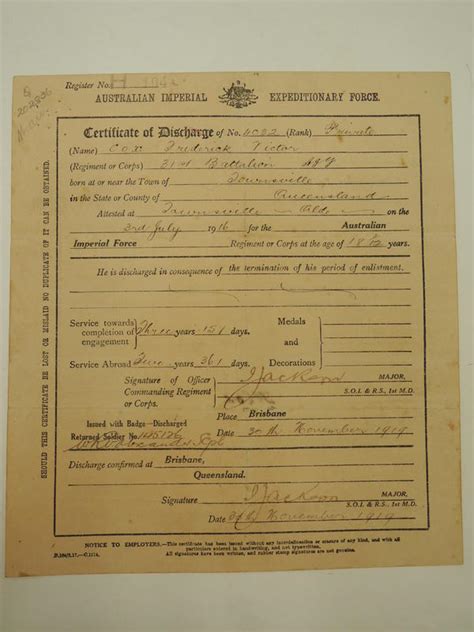 Register No.
AUSTRALIAN IMPERIAL EXPEDITIONARY FORCE.
Certificate of Discharge of No. 4022 (Rank) Private
(Name) Cox Frederick Victor
(Regiment or Corps) 31st Battalion AIF
born at or near the Town of Townsville
in the State or County of Queensland
Attested at Townsville Qld on the
3rd July 1916 for the Australian
Imperial Force Regiment or Corps at the age of 18 years.
He is discharged in consequence of the termination of his period of enlistment.
Service towards completion of engagement Three years 151 days.
Medals and Decorations
Service Abroad Two years 361 days.
Signature of Officer Commanding Regiment or Corps. Jackson MAJOR,
S.O.I. & R.S., 1st M.D.
Place Brisbane
Issued with Badge—Discharged
Returned Soldier No.
Date 30th November 1919
Discharge confirmed at Brisbane,
Queensland.
Signature Jackson MAJOR,
S.O.I. & R.S., 1st M.D.
Date 30th November 1919
NOTICE TO EMPLOYERS.—This certificate has been issued without any interlineation or erasure of any kind, and with all
particulars entered in handwriting, and not typewritten.
All signatures have been written, and rubber stamp signatures are not genuine.
SHOULD THIS CERTIFICATE BE LOST OR MISLAID NO DUPLICATE OF IT CAN BE OBTAINED.